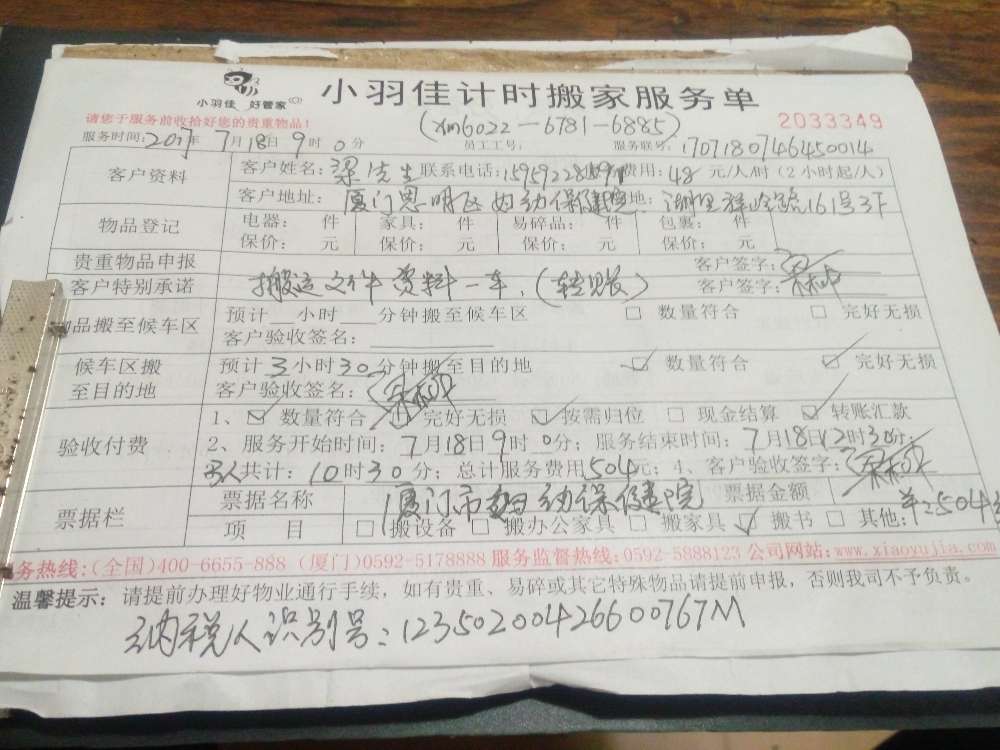 小羽佳 好管家
小羽佳计时搬家服务单
请您于服务前收拾好您的贵重物品!
(xm6022-6781-6885)
2033349
服务时间:2017年7月18日9时0分 员工工号: 服务联号:17071807464450014
客户资料 客户姓名:梁先生 联系电话: 费用:48元/人/时(2小时起/人)
客户地址:厦门思明区妇幼保健院 地:湖里 路161号3F
物品登记 电器: 件 家具: 件 易碎品: 件 包裹: 件
保价: 元 保价: 元 保价: 元 保价: 元
贵重物品申报 客户签字:
客户特别承诺 搬运文件资料一车.(转账) 客户签字:
物品搬至候车区 预计 小时 分钟搬至候车区 □ 数量符合 □ 完好无损
客户验收签名:
候车区搬至目的地 预计3小时30分钟搬至目的地 ☑ 数量符合 ☑ 完好无损
客户验收签名:
验收付费 1、☑ 数量符合 完好无损 ☑ 按需归位 □ 现金结算 ☑ 转账汇款
2、服务开始时间:7月18日9时0分;服务结束时间:7月18日12时30分;
3人共计:10时30分;总计服务费用504元;4、客户验收签字:
票据栏 票据名称 厦门市妇幼保健院 票据金额 ¥:504
项 目 □ 搬设备 □ 搬办公家具 □ 搬家具 ☑ 搬书 □ 其他:
务热线:(全国)400-6655-888 (厦门)0592-5178888 服务监督热线:0592-5888123 公司网站:www.xiaoyujia.com
温馨提示:请提前办理好物业通行手续,如有贵重、易碎或其它特殊物品请提前申报,否则我司不予负责。
纳税人识别号:12350200426600767M